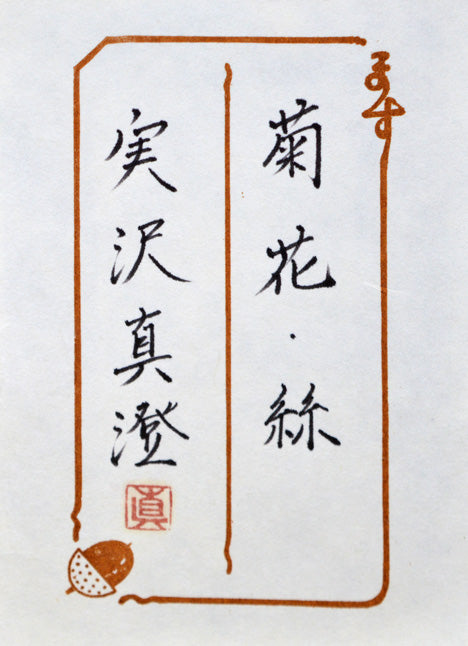 ます
菊花・絲
実沢真澄
真